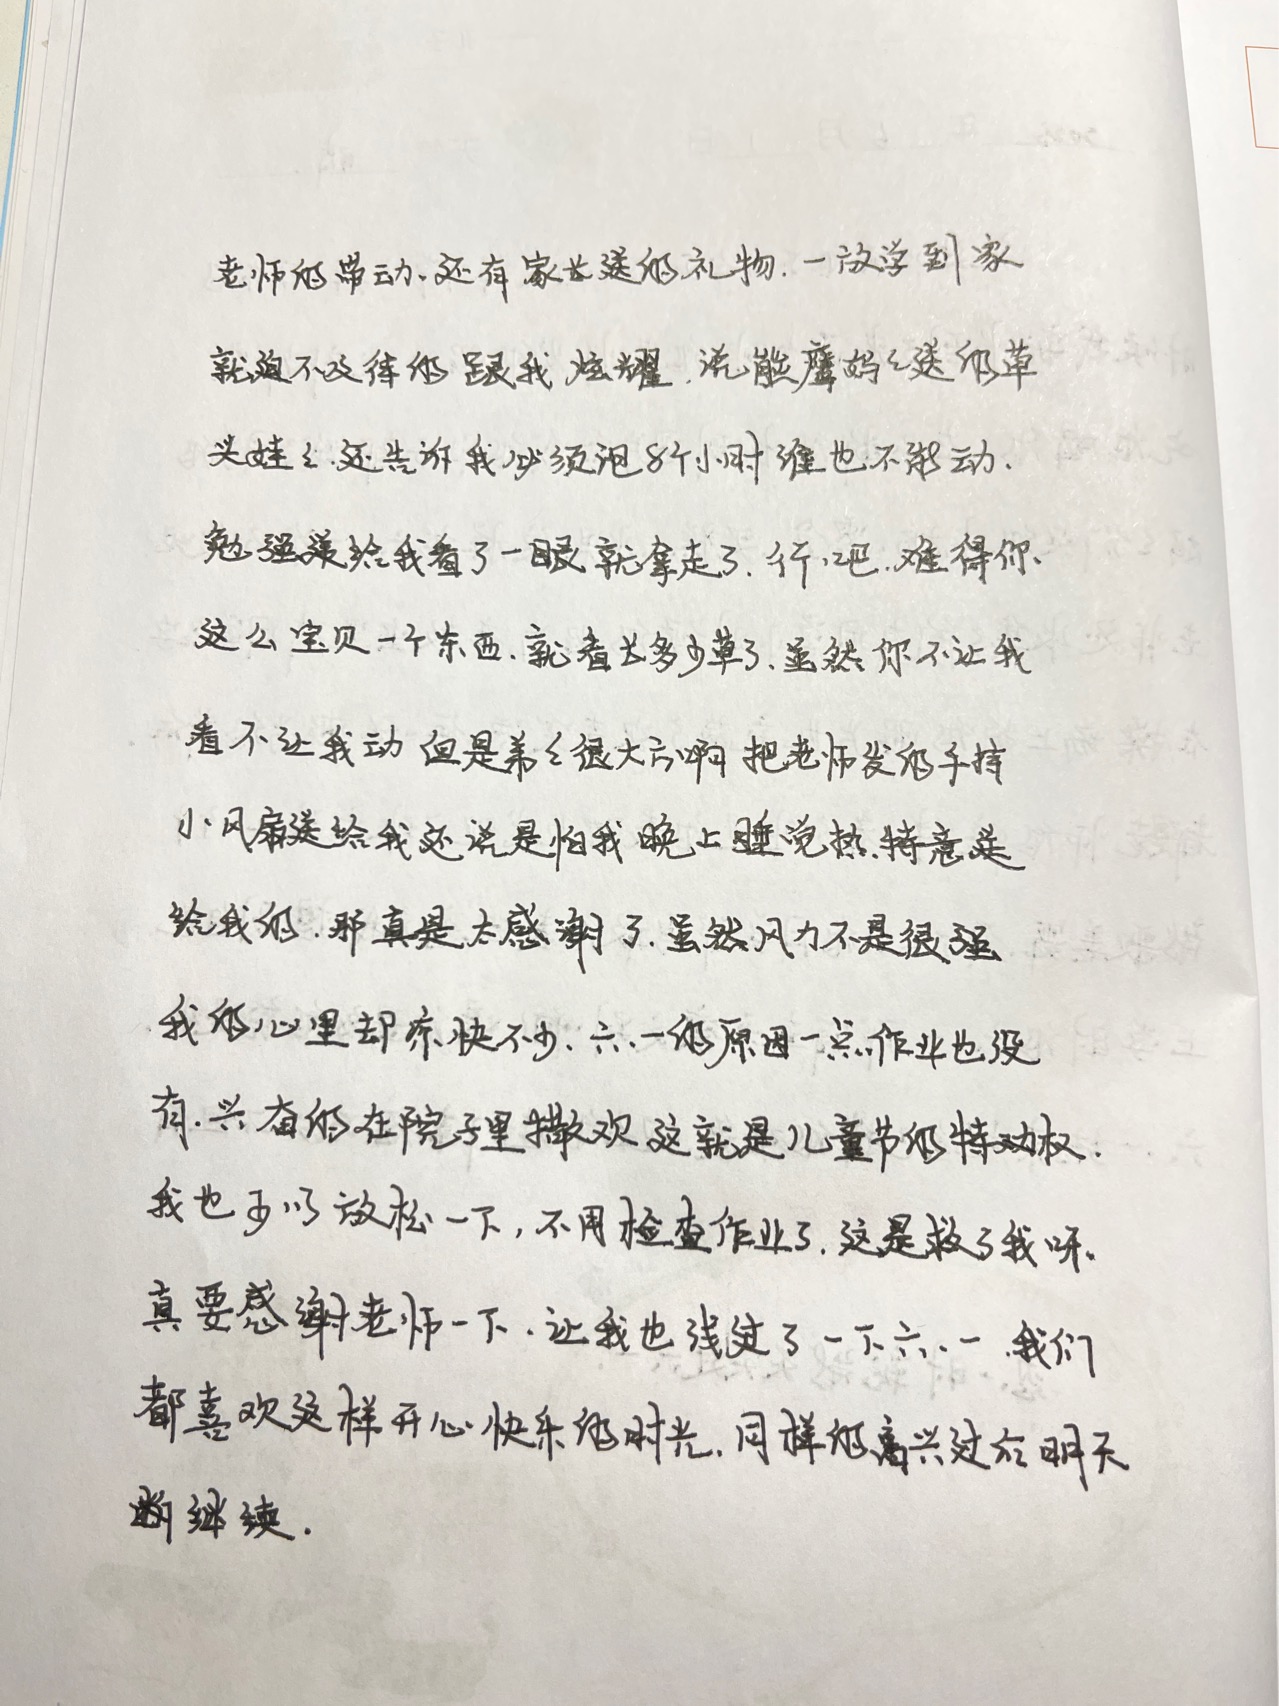 老师的带动、还有家长送的礼物.一放学到家
就迫不及待的跟我炫耀.说熊鹰妈々送的草
头娃々.还告诉我必须泡8个小时谁也不能动.
勉强送给我看了一眼就拿走了.行吧.难得你、
这么宝贝一个东西.就看长多少草了.虽然你不让我
看不让我动但是弟々很大方啊把老师发的手持
小风扇送给我还说是怕我晚上睡觉热.特意送
给我的.那真是太感谢了.虽然风力不是很强
我的心里却凉快不少.六.一的原因一点作业也没
有.兴奋的在院子里撒欢这就是儿童节的特权.
我也可以放松一下,不用检查作业了.这是救了我呀、
真要感谢老师一下.让我也浅过了一下六.一.我们
都喜欢这样开心快乐的时光.同样的高兴过在明天
继续.